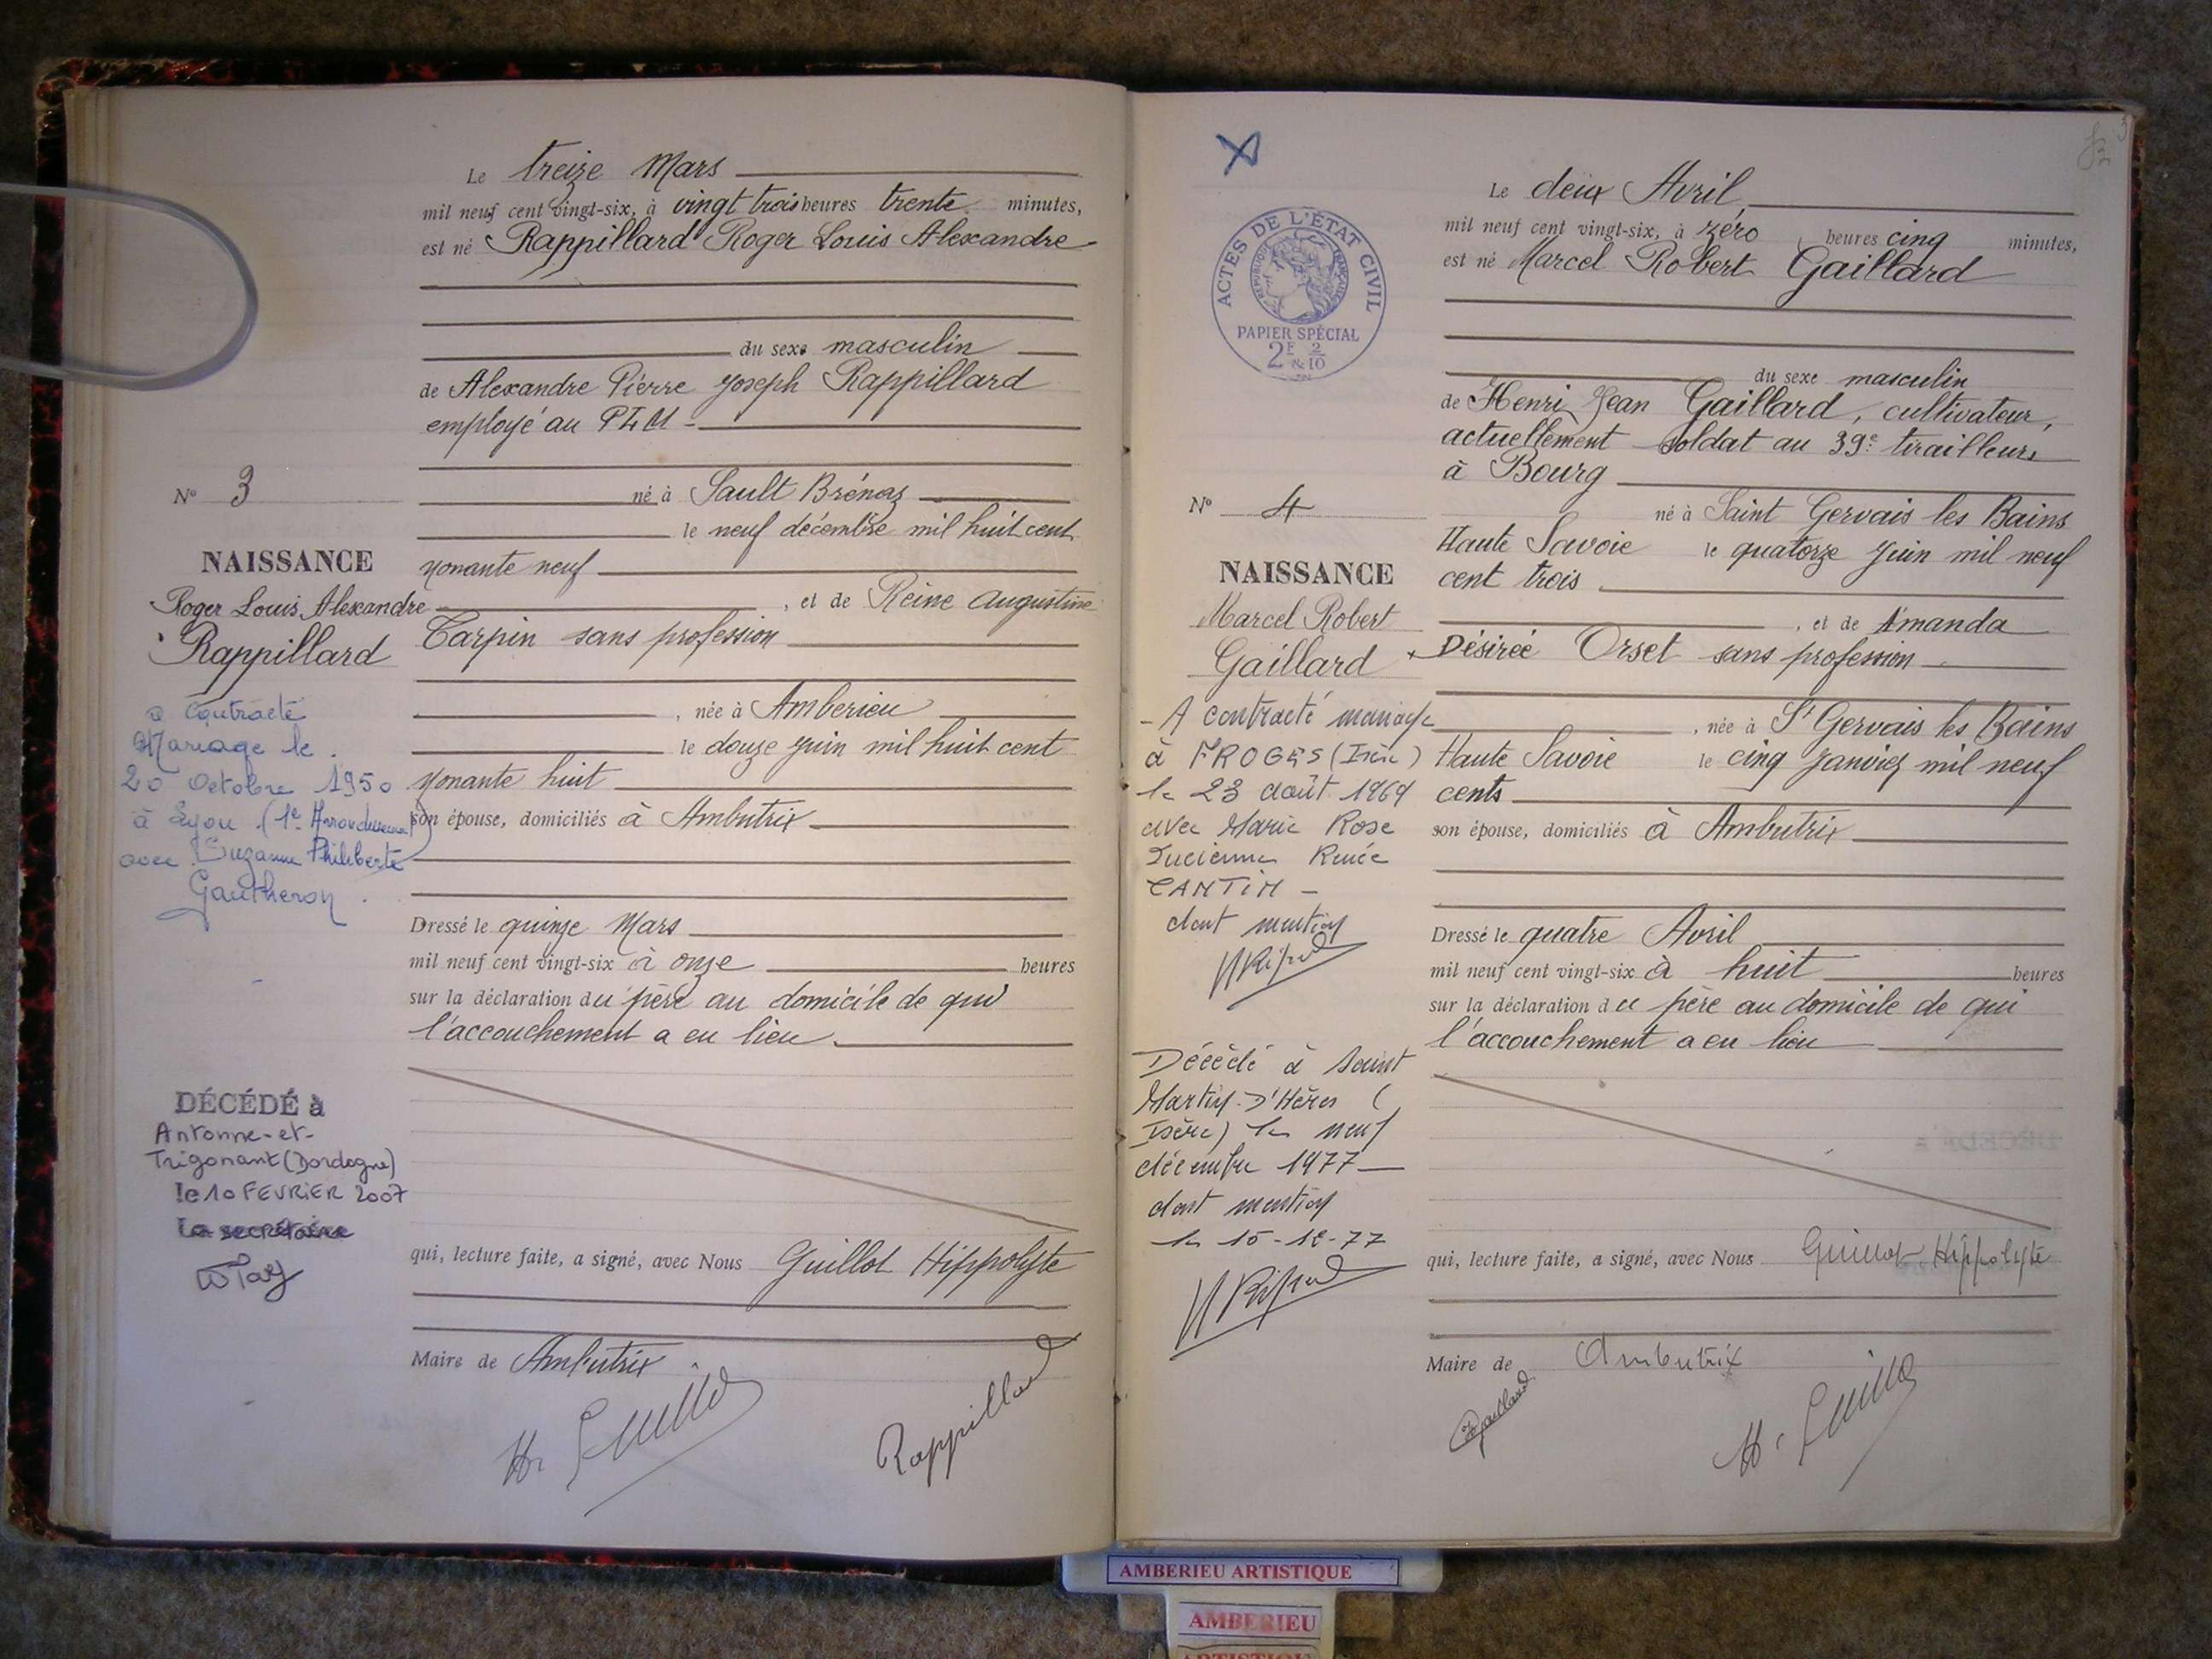 Le treize Mars
mil neuf cent vingt-six, à vingt trois heures trente minutes,
est né Rappillard Roger Louis Alexandre
du sexe masculin
de Alexandre Pierre Joseph Rappillard
employé au PLM -
né à Sault Brénaz
le neuf décembre mil huit cent
nonante neuf
, et de Reine Augustine
Tarpin sans profession
, née à Amberieu
le douze juin mil huit cent
nonante huit
son épouse, domiciliés à Ambutrix
Dressé le quinze Mars
mil neuf cent vingt-six à onze heures
sur la déclaration du père au domicile de qui
l'accouchement a eu lieu.
qui, lecture faite, a signé, avec Nous Guillot Hippolyte
Maire de Ambutrix
H. Guillot
Rappillard
N° 3
NAISSANCE
Roger Louis Alexandre
Rappillard
a contracté
Mariage le
20 Octobre 1950
à Lyon (1e Arrondissement)
avec Suzanne Philiberte
Gautheron.
DÉCÉDÉ à
Antonne-et-
Trigonant (Dordogne)
le 10 FEVRIER 2007
La secrétaire
Le deux Avril
mil neuf cent vingt-six, à zéro heures cinq minutes,
est né Marcel Robert Gaillard
du sexe masculin
de Henri Jean Gaillard, cultivateur,
actuellement soldat au 39e tirailleurs
à Bourg
né à Saint Gervais les Bains
Haute Savoie le quatorze juin mil neuf
cent trois
, et de Amanda
Désirée Orset sans profession
, née à St Gervais les Bains
Haute Savoie le cinq janvier mil neuf
cents
son épouse, domiciliés à Ambutrix
Dressé le quatre Avril
mil neuf cent vingt-six à huit heures
sur la déclaration du père au domicile de qui
l'accouchement a eu lieu
qui, lecture faite, a signé, avec Nous Guillot Hippolyte
Maire de Ambutrix
Gaillard
H. Guillot
ACTES DE L'ÉTAT CIVIL
RÉPUBLIQUE FRANÇAISE
PAPIER SPÉCIAL
2F & 2/10
N° 4
NAISSANCE
Marcel Robert
Gaillard
- A contracté mariage
à FROGES (Isère)
le 23 août 1969
avec Marie Rose
Lucienne Renée
CANTIN -
dont mention
Décédé à Saint
Martin-D'Hères (
Isère) le neuf
décembre 1977
dont mention
le 15-12-77
AMBERIEU ARTISTIQUE
AMBERIEU
ARTISTIQUE